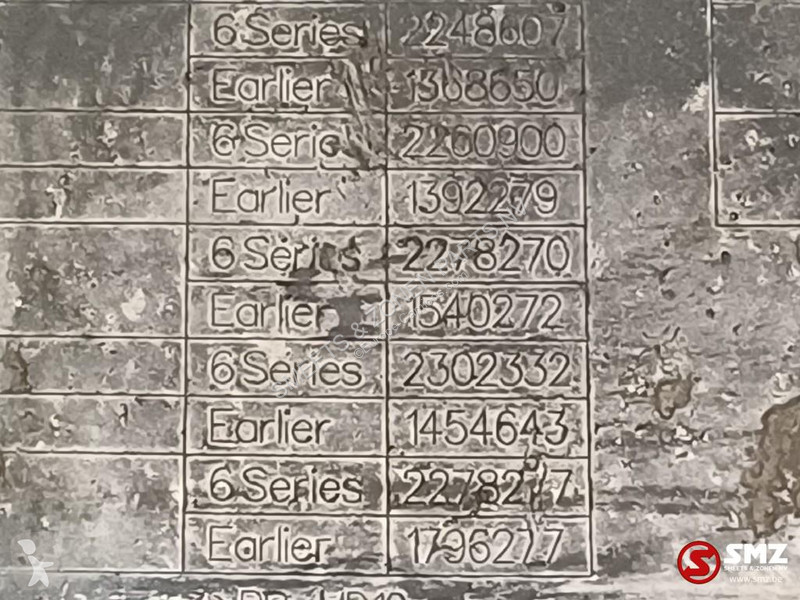 6 Series 2248607
Earlier 1368650
6 Series 2260900
Earlier 1392279
6 Series 2278270
Earlier 1540272
6 Series 2302332
Earlier 1454643
6 Series 2278277
Earlier 1796277
SMZ
SMEETS & ZONEN
www.smz.be